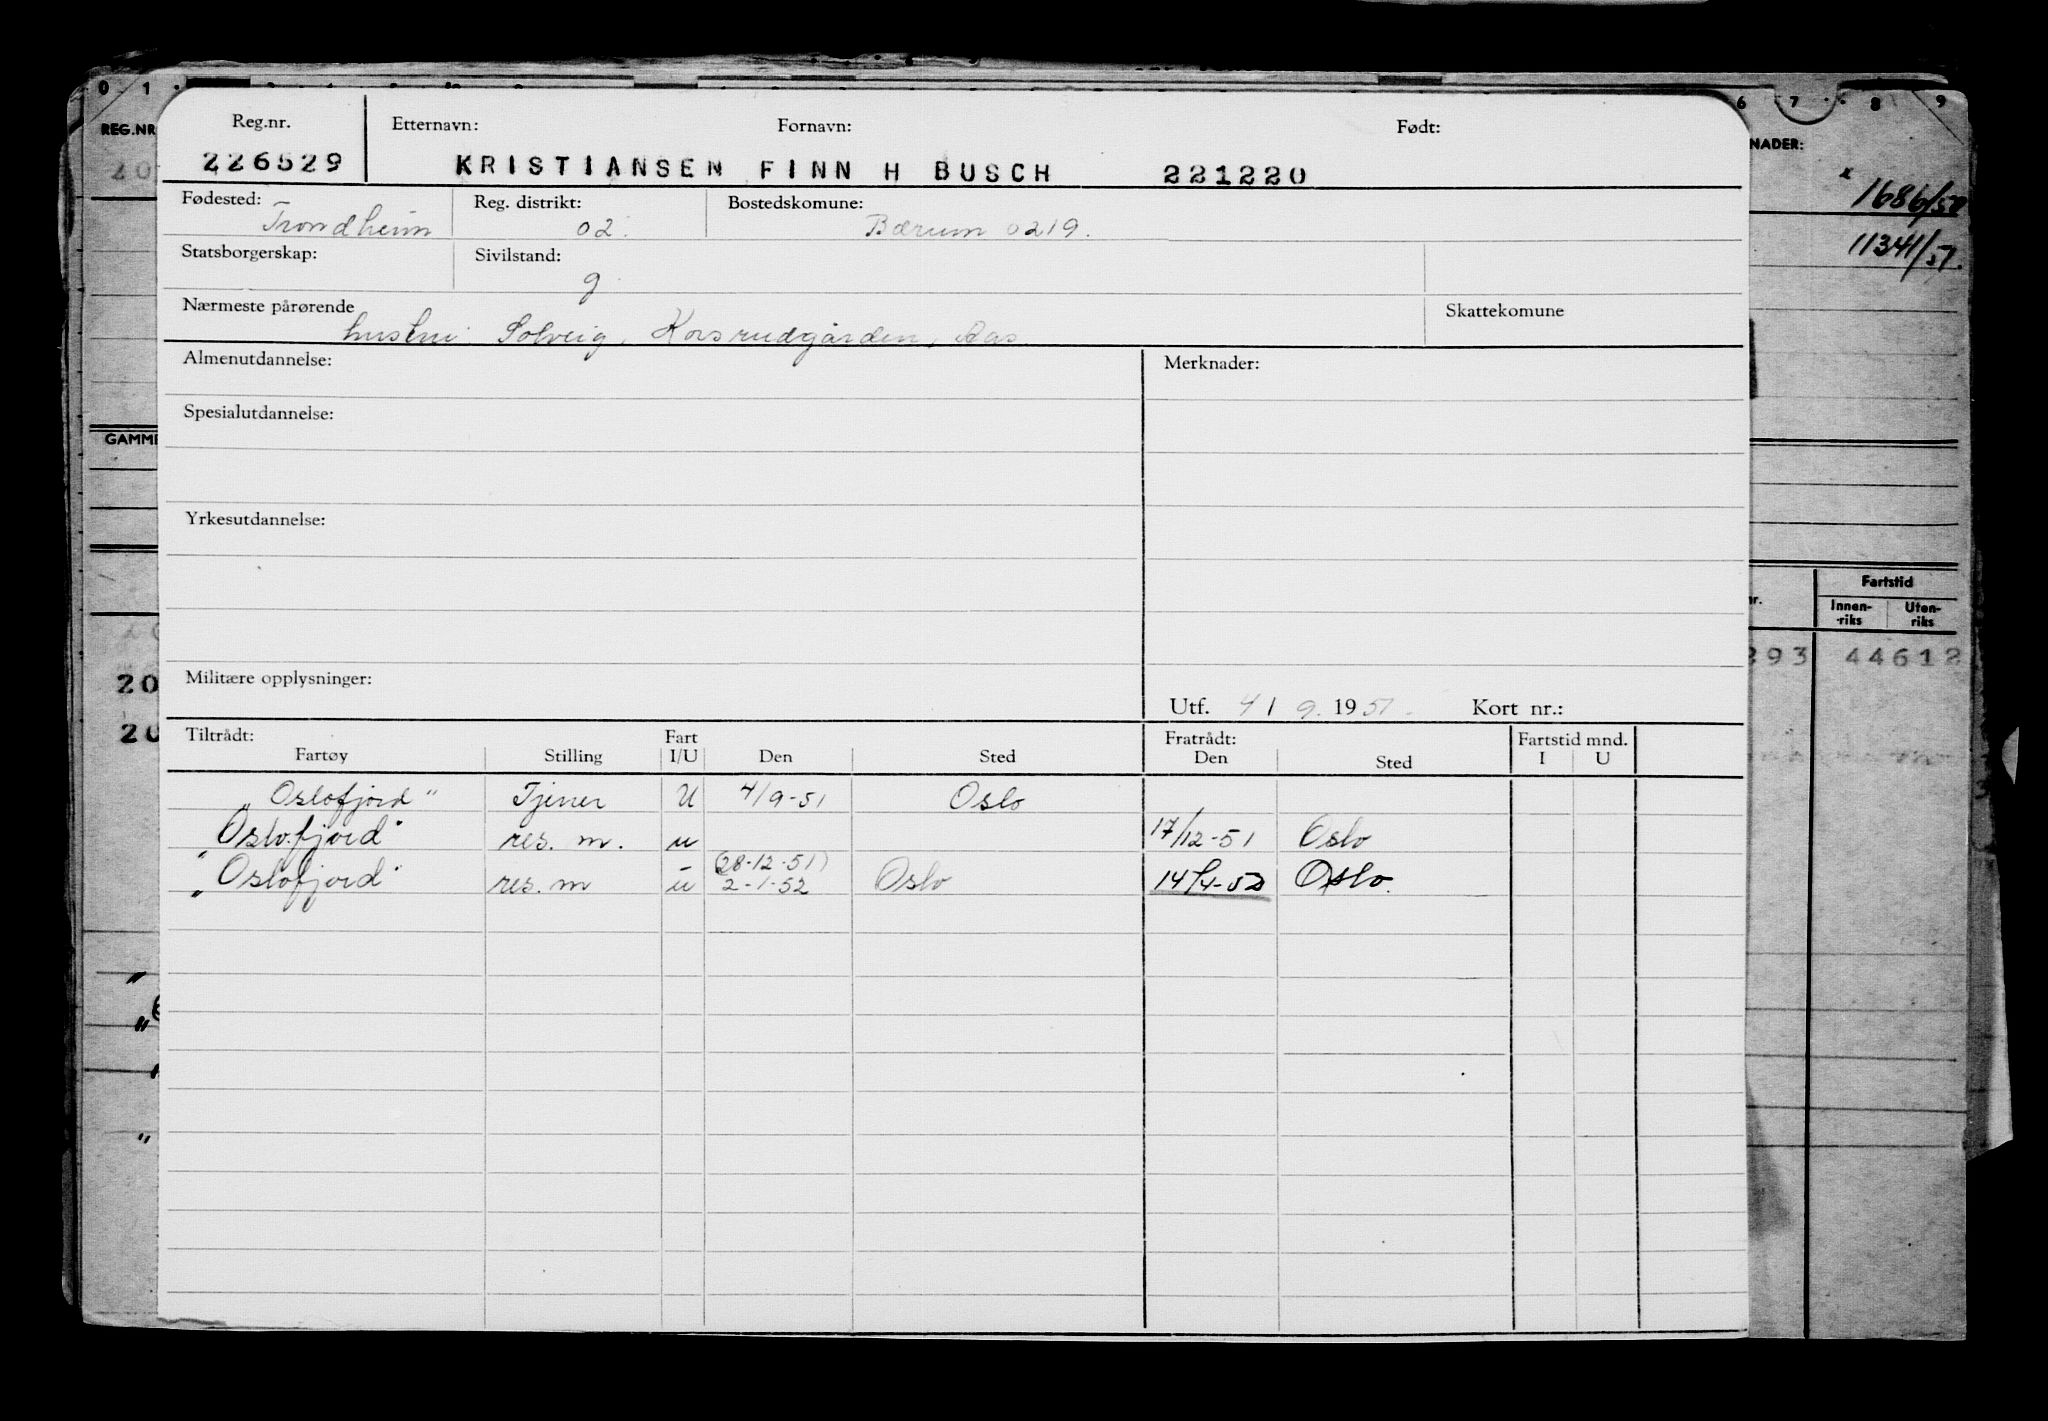 0 1 6 7 8 9
REG.NR
NADER:
Reg.nr. Etternavn: Fornavn: Født:
226529 KRISTIANSEN FINN H BUSCH 221220
20
1686/50
11341/51.
Fødested: Trondheim Reg. distrikt: 02. Bostedskomune: Bærum 0219.
Statsborgerskap: Sivilstand: g
Nærmeste pårørende Skattekomune
hustru Solveig, Korsrudgården, Aas
Almenutdannelse: Merknader:
Spesialutdannelse:
GAMME
Yrkesutdannelse:
Fartstid
nr. Innen-riks Uten-riks
293 44612
Militære opplysninger:
20
Utf. 4/9. 1951. Kort nr.:
20
Tiltrådt: Fart Fratrådt: Fartstid mnd.
Fartøy Stilling I/U Den Sted Den Sted I U
"Oslofjord" Tjener U 4/9-51 Oslo
"Oslofjord" res. m. u 17/12-51 Oslo
(28-12-51)
"Oslofjord" res. m u 2-1-52 Oslo 14/4-52 Oslo.